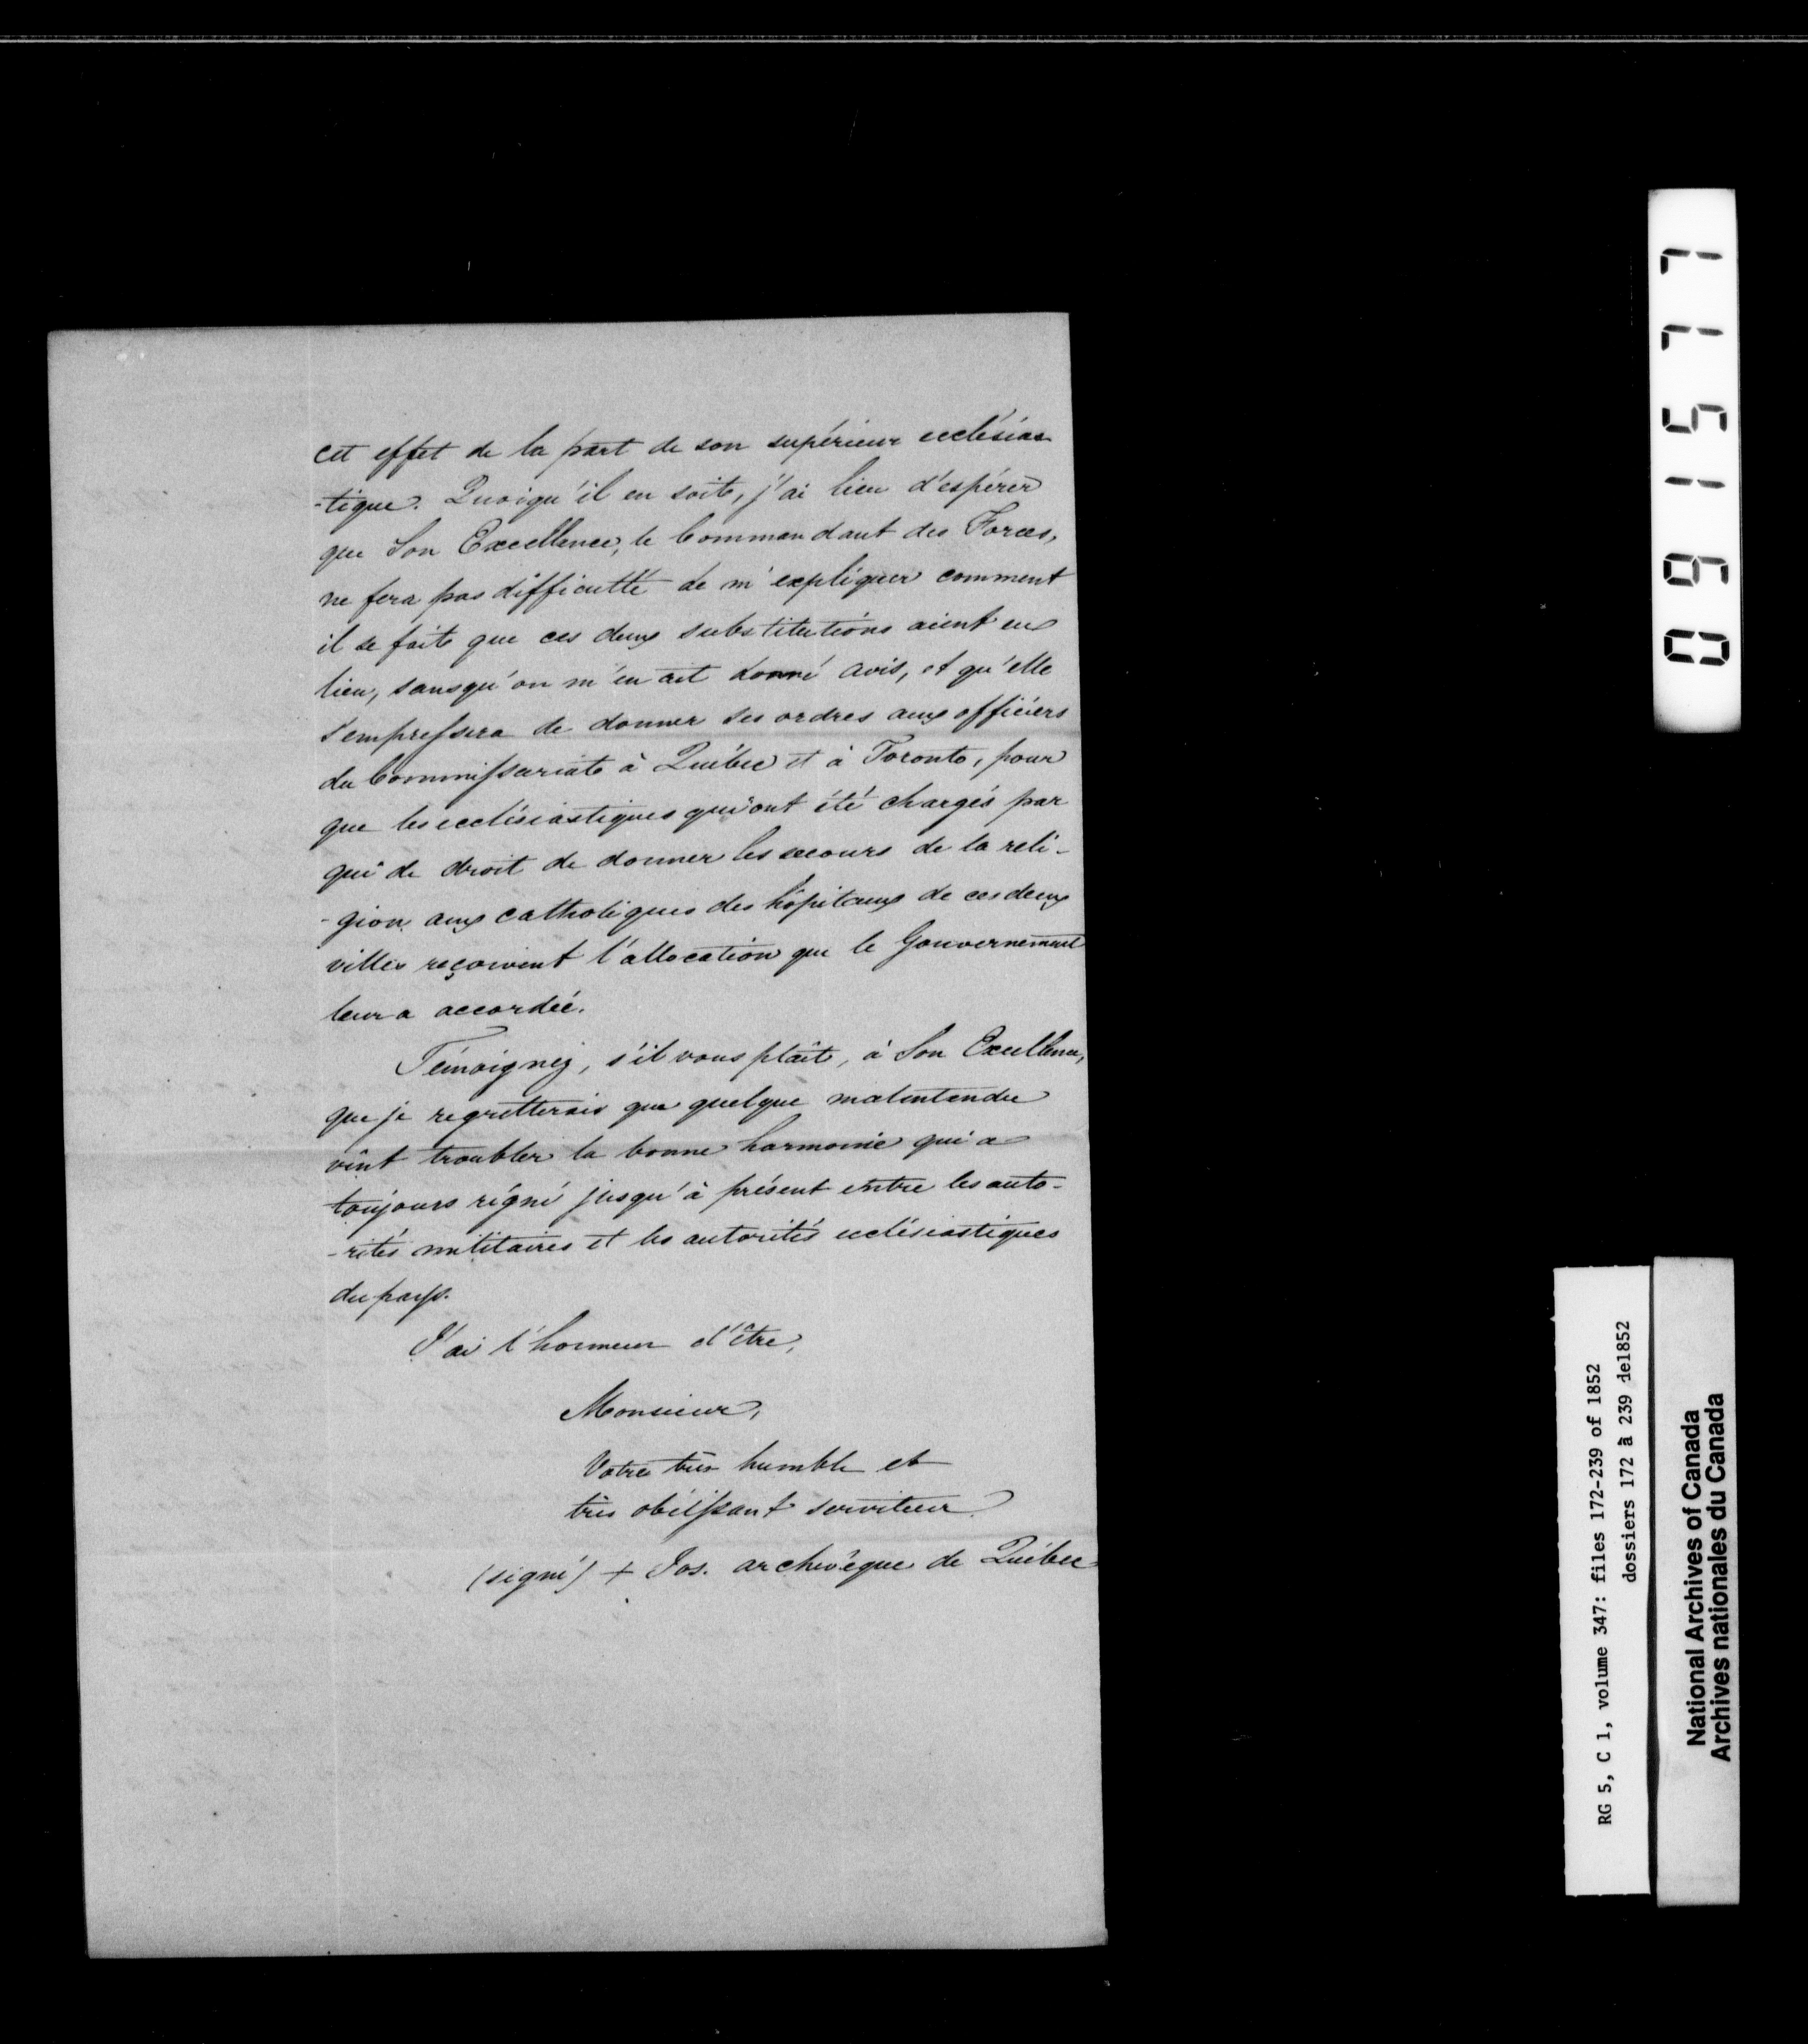 cet effet de la part de son supérieur ecclésias
-tique. Quoiqu'il en soit, j'ai lieu d'espérer
que Son Excellence, le Commandant des Forces,
ne fera pas difficulté de m'expliquer comment
il se fait que ces deux substitutions aient eu
lieu, sans qu'on m'en ait donné avis, et qu'elle
s'empressera de donner ses ordres aux officiers
du Commissariat à Québec et à Toronto, pour
que les ecclésiastiques qui ont été chargés par
qui de droit de donner les secours de la reli-
-gion aux catholiques des hôpitaux de ces deux
villes reçoivent l'allocation que le Gouvernement
leur a accordée.
Témoignez, s'il vous plaît, à Son Excellence,
que je regretterais que quelque malentendu
vînt troubler la bonne harmonie qui a
toujours régné jusqu'à présent entre les auto-
-rités militaires et les autorités ecclésiastiques
du pays.
J'ai l'honneur d'être,
Monsieur,
Votre très humble et
très obéissant serviteur
(signé) + Jos. archevêque de Québec
091577
RG 5, C 1, volume 347: files 172-239 of 1852
dossiers 172 à 239 de1852
National Archives of Canada
Archives nationales du Canada